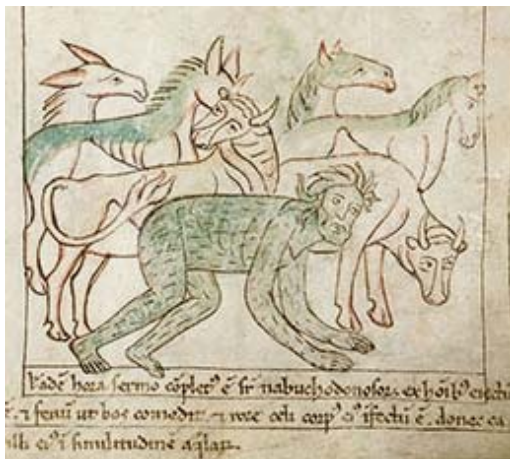 Eadē hora sermo cōplet' ē sr̄ nabuchodonosor. ex hōib' eiectu
ē. ⁊ fenū ut bos comedit. ⁊ rore celi corp' ei' ifectū ē. donec ca
illi ei' ī similitudinē aq̄laꝝ.